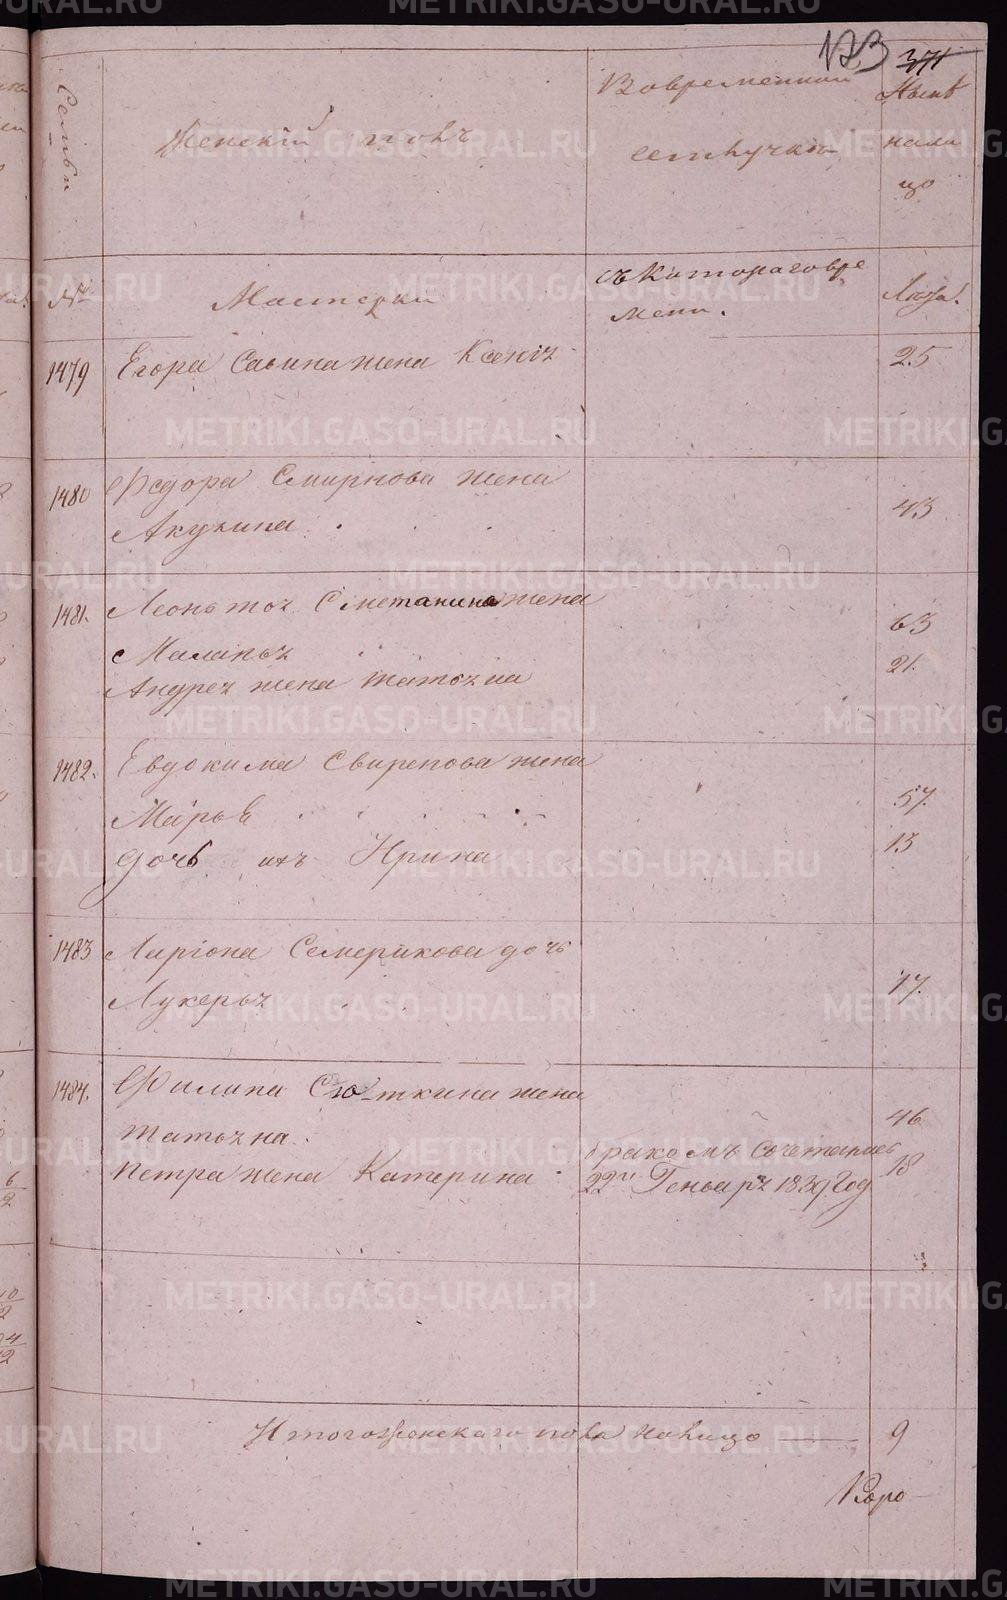 123 371
Семьи
Женскій полъ
Вовременной
отлучке
Нынѣ
нали
цо
№
Мастерки
съ Котораговре
мени.
Лета.
1479 Егора Савина жена Ксенія 25
1480 Федора Смирнова жена
Акулина 43
1481. Леонътья Сметанина жена
Маланья 63
Андрея жена татьяна 21.
1482. Евдокима Свирепова жена
Марья 57.
дочь ихъ Ирина 13
1483 Ларіона Семерикова дочь
Лукерья 17.
1484. Филипа Сюткина жена
татьяна. 46
Петра жена Катерина бракомъ сочетались 18
22го Генваря 1839 Год
Итого женскаго пола налицо 9
Коро
METRIKI.GASO-URAL.RU